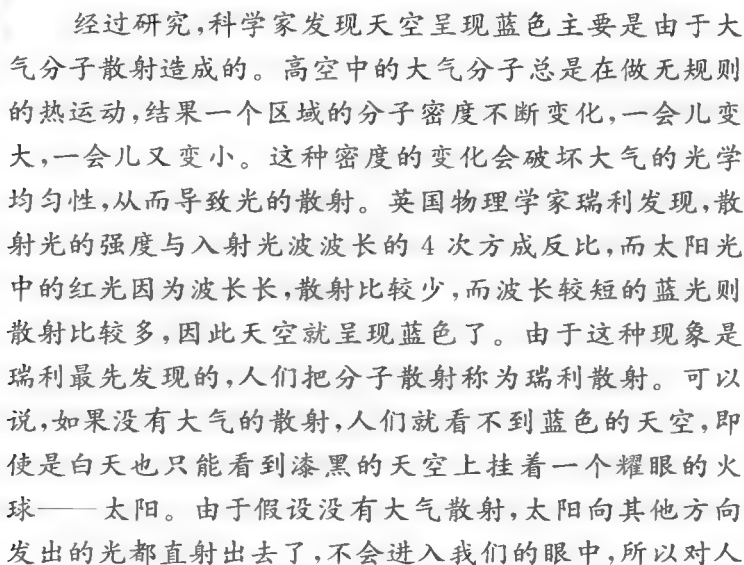 经过研究,科学家发现天空呈现蓝色主要是由于大
气分子散射造成的。高空中的大气分子总是在做无规则
的热运动,结果一个区域的分子密度不断变化,一会儿变
大,一会儿又变小。这种密度的变化会破坏大气的光学
均匀性,从而导致光的散射。英国物理学家瑞利发现,散
射光的强度与入射光波波长的 4 次方成反比,而太阳光
中的红光因为波长长,散射比较少,而波长较短的蓝光则
散射比较多,因此天空就呈现蓝色了。由于这种现象是
瑞利最先发现的,人们把分子散射称为瑞利散射。可以
说,如果没有大气的散射,人们就看不到蓝色的天空,即
使是白天也只能看到漆黑的天空上挂着一个耀眼的火
球——太阳。由于假设没有大气散射,太阳向其他方向
发出的光都直射出去了,不会进入我们的眼中,所以对人